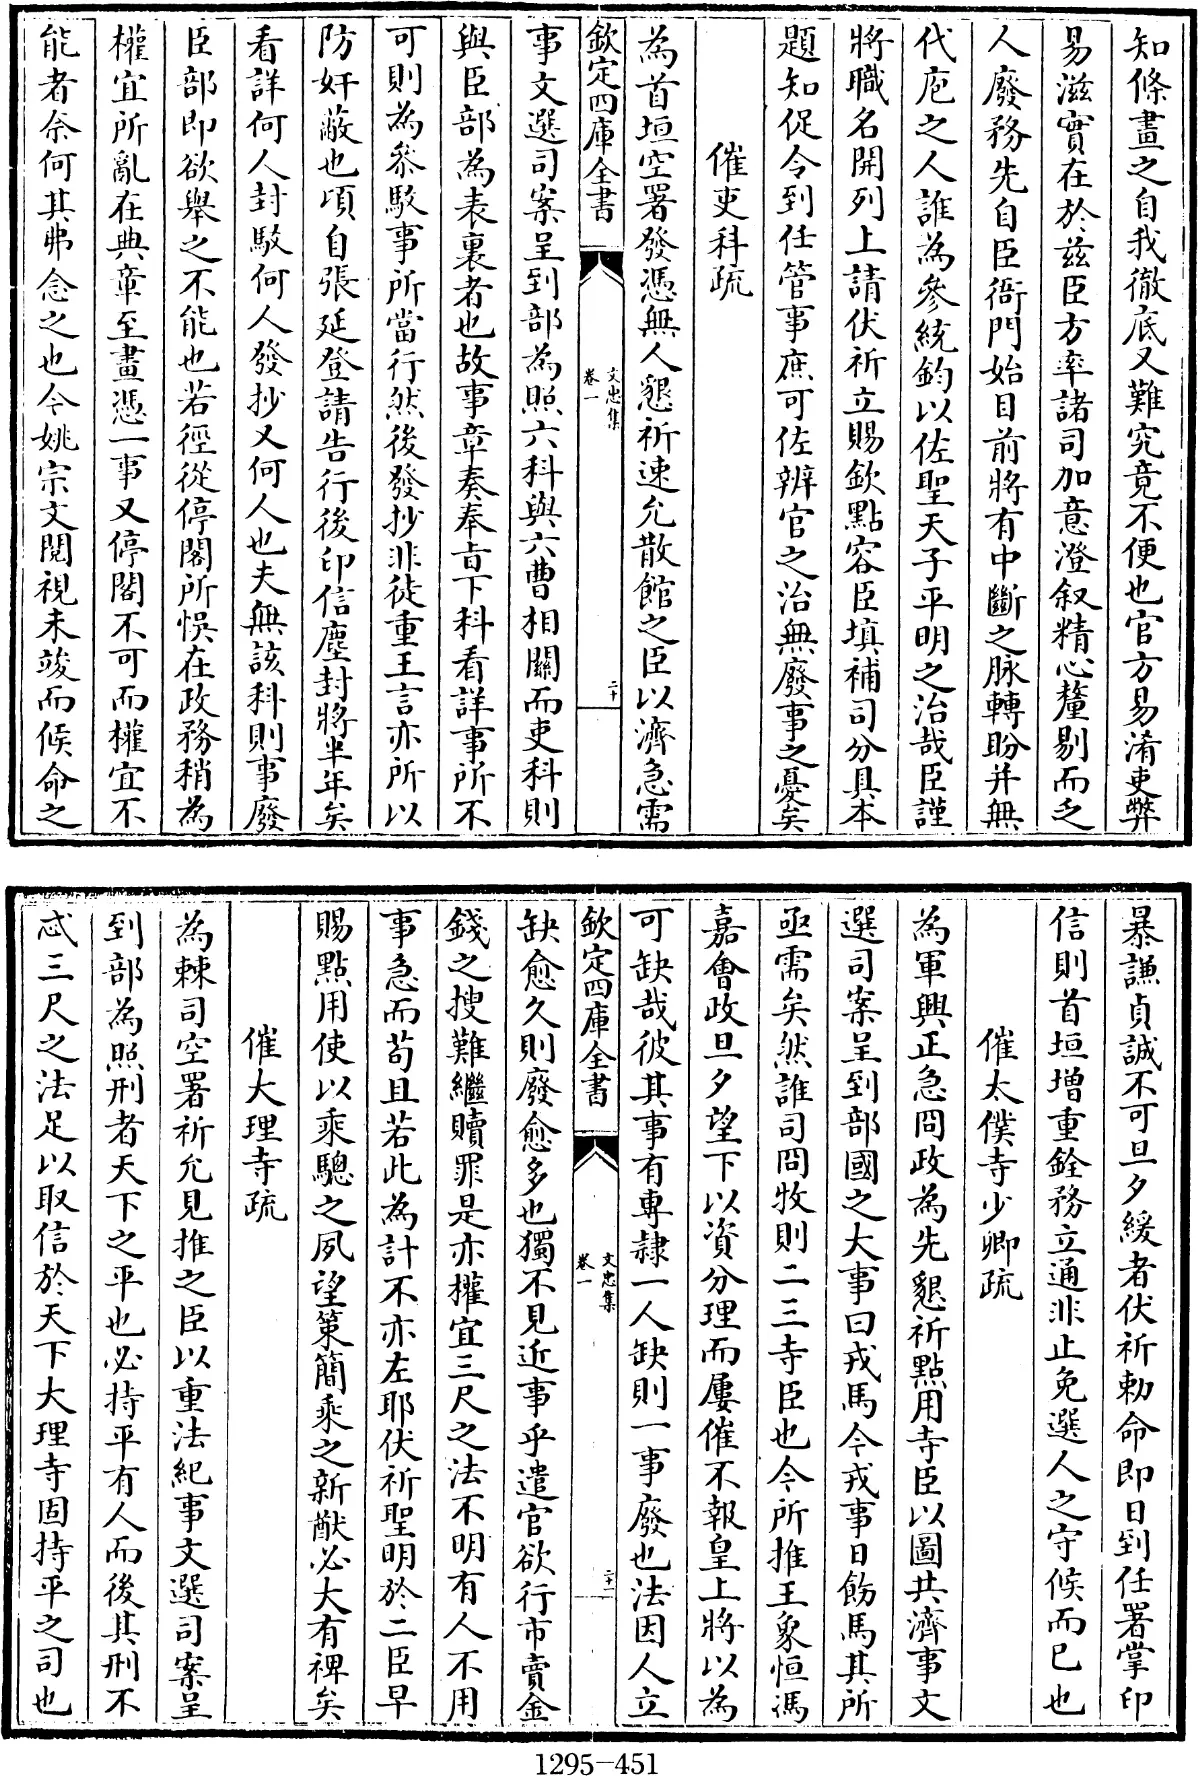 知條畫之自我徹底又難究竟不便也官方易淆吏弊
易滋實在於兹臣方率諸司加意澄叙精心釐剔而乏
人廢務先自臣衙門始目前將有中斷之脉轉盼并無
代庖之人誰為參統鈞以佐聖天子平明之治哉臣謹
將職名開列上請伏祈立賜欽點容臣填補司分具本
題知促令到任管事庶可佐辨官之治無廢事之憂矣
催吏科疏
為首垣空署發憑無人懇祈速允散館之臣以濟急需
欽定四庫全書
文忠集
卷一
二十
事文選司案呈到部為照六科與六曹相關而吏科則
與臣部為表裏者也故事章奏奉㫖下科看詳事所不
可則為叅駮事所當行然後發抄非徒重王言亦所以
防奸蔽也頃自張延登請告行後印信塵封將半年矣
看詳何人封駮何人發抄又何人也夫無該科則事廢
臣部即欲舉之不能也若徑從停閣所悞在政務稍為
權宜所亂在典章至畫憑一事又停閣不可而權宜不
能者奈何其弗念之也今姚宗文閱視未竣而候命之
暴謙貞誠不可旦夕緩者伏祈勅命即日到任署掌印
信則首垣增重銓務立通非止免選人之守候而已也
催太僕寺少卿疏
為軍興正急冏政為先懇祈點用寺臣以圖共濟事文
選司案呈到部國之大事曰戎馬今戎事日飭馬其所
亟需矣然誰司冏牧則二三寺臣也今所推王象恒馮
嘉會政旦夕望下以資分理而屢催不報皇上將以為
可缺哉彼其事有專隷一人缺則一事廢也法因人立
欽定四庫全書
文忠集
卷一
二十一
缺愈久則廢愈多也獨不見近事乎遣官欲行市賣金
錢之搜難繼贖罪是亦權宜三尺之法不明有人不用
事急而苟且若此為計不亦左耶伏祈聖明於二臣早
賜點用使以乘驄之夙望策簡乘之新猷必大有裨矣
催大理寺疏
為棘司空署祈允見推之臣以重法紀事文選司案呈
到部為照刑者天下之平也必持平有人而後其刑不
忒三尺之法足以取信於天下大理寺固持平之司也
1295-451